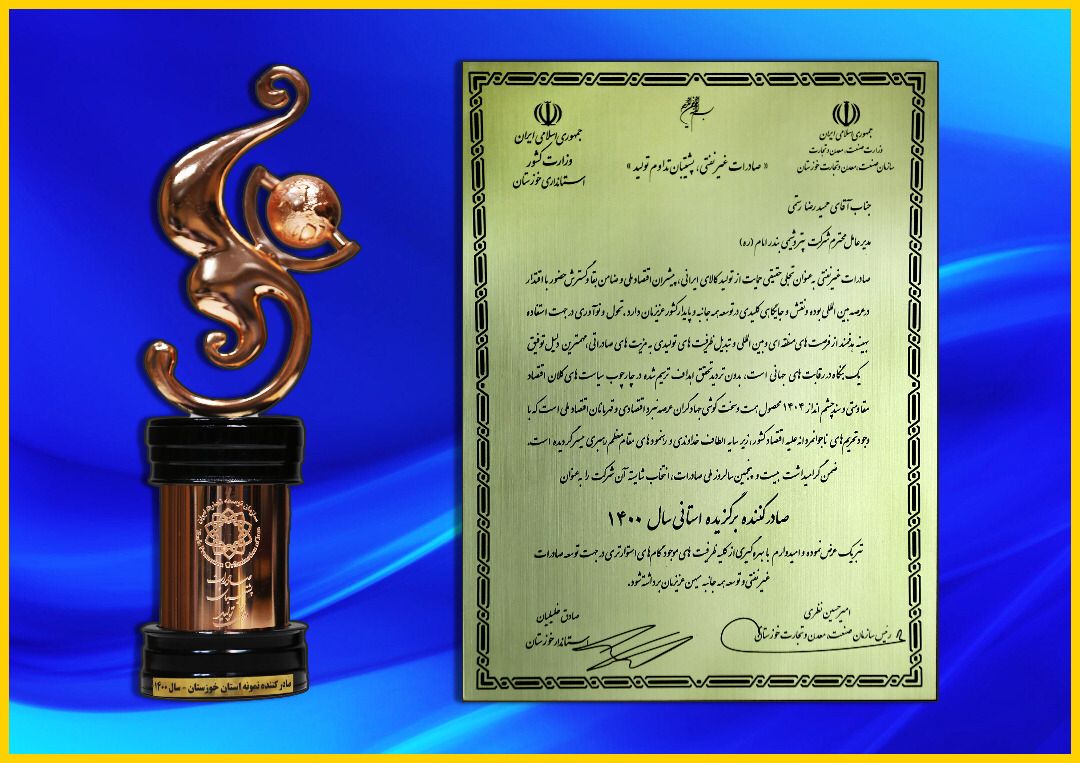 جمهوری اسلامی ایران
وزارت صنعت، معدن و تجارت
سازمان صنعت، معدن و تجارت خوزستان
جمهوری اسلامی ایران
وزارت کشور
استانداری خوزستان
« صادرات غیرنفتی، پشتیبان تداوم تولید »
جناب آقای حمیدرضا رستمی
مدیرعامل محترم شرکت پتروشیمی بندر امام (ره)
صادرات غیرنفتی به‌عنوان تجلی حقیقی حمایت از تولید کالای ایرانی، پیشران اقتصاد ملی و ضامن بقا و گسترش حضور با اقتدار
در عرصه بین المللی بوده و نقش و جایگاهی کلیدی در توسعه همه جانبه و پایدار کشور عزیزمان دارد. تحول و نوآوری در جهت استفاده
بهینه هدفمند از فرصت های منطقه ای و بین المللی و تبدیل ظرفیت های تولیدی به مزیت های صادراتی، مهمترین دلیل توفیق
یک بنگاه در رقابت های جهانی است، بدون تردید تحقق اهداف ترسیم شده در چارچوب سیاست های کلان اقتصاد
مقاومتی و سند چشم انداز ۱۴۰۴ محصول همت و سخت کوشی جهادگران عرصه نبرد اقتصادی و قهرمانان اقتصاد ملی است که با
وجود تحریم های ناجوانمردانه علیه اقتصاد کشور، زیر سایه الطاف خداوندی و رهنمودهای مقام معظم رهبری میسر گردیده است.
ضمن گرامیداشت بیست و پنجمین سالروز ملی صادرات، انتخاب شایسته آن شرکت را به عنوان
صادرکننده برگزیده استانی سال ۱۴۰۰
تبریک عرض نموده و امیدوارم با بهره گیری از کلیه ظرفیت های موجود گام های استوارتری در جهت توسعه صادرات
غیرنفتی و توسعه همه جانبه میهن عزیزمان برداشته شود.
امیرحسین نظری
رئیس سازمان صنعت، معدن و تجارت خوزستان
صادق خلیلیان
استاندار خوزستان
سازمان توسعه تجارت ایران
Trade Promotion Organization of Iran
صادرات
پشتیبان
تولید
صادر کننده نمونه استان خوزستان - سال ۱۴۰۰